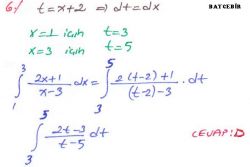 BATCEBİR
6/ t=x+2 ⇒ dt=dx
x=1 için t=3
x=3 için t=5
∫₁³ (2x+1)/(x-3) dx = ∫₃⁵ (2(t-2)+1)/((t-2)-3) . dt
∫₃⁵ (2t-3)/(t-5) dt
CEVAP:D